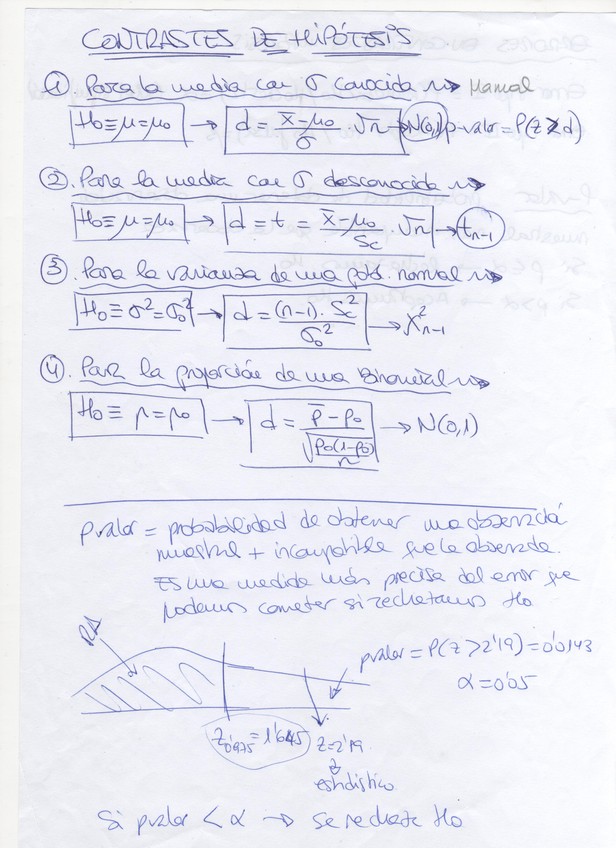 CONTRASTES DE HIPÓTESIS
① Para la media con σ conocida → Manual
H₀ ≡ μ = μ₀ → d = (x̄ - μ₀)/σ · √n → N(0,1) p-valor = P(Z > d)
② Para la media con σ desconocida →
H₀ ≡ μ = μ₀ → d = t = (x̄ - μ₀)/Sc · √n → tn-1
③ Para la varianza de una pob. normal →
H₀ ≡ σ² = σ₀² → d = (n-1) · Sc²/σ₀² → χ²n-1
④ Para la proporción de una Binomial →
H₀ ≡ p = p₀ → d = (p̄ - p₀)/√(p₀(1-p₀)/n) → N(0,1)
pvalor = probabilidad de obtener una observación
muestral + incompatible que la observada.
Es una medida más precisa del error que
podemos cometer si rechazamos H₀
RA
pvalor = P(Z > 2'19) = 0'0143
α = 0'05
Z0'975 = 1'645
Z = 2'19
estadístico
Si pvalor < α → se rechaza H₀